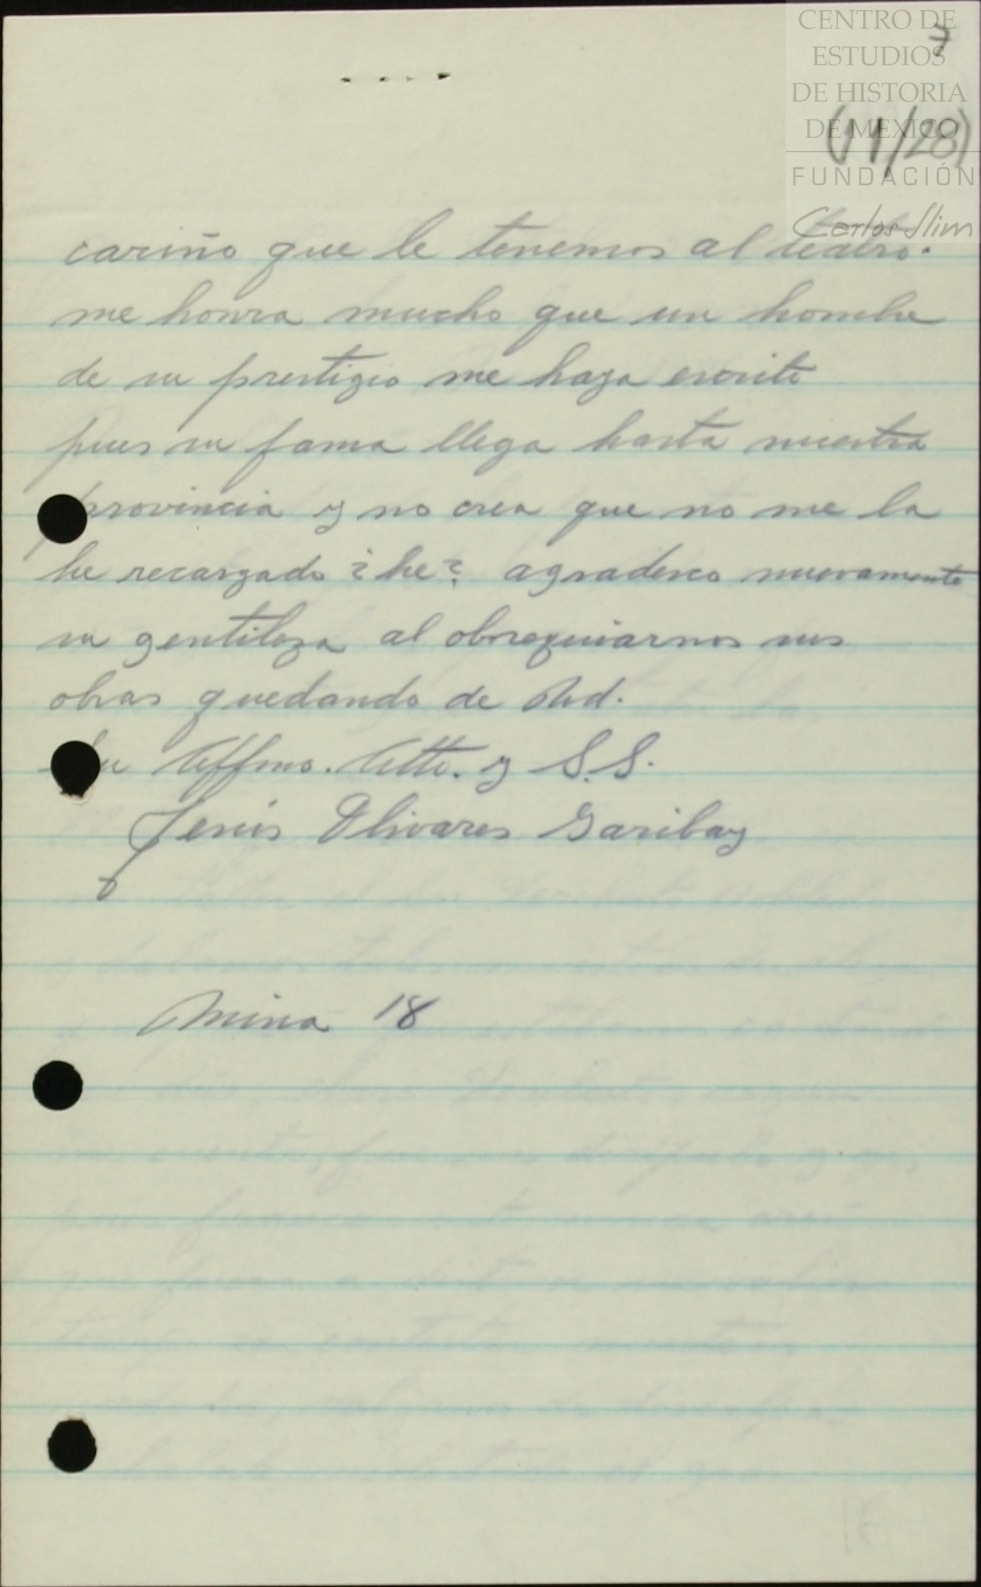 CENTRO DE
ESTUDIOS
DE HISTORIA
DE MEXICO
FUNDACIÓN
Carlos Slim
7
(11/28)
cariño que le tenemos al teatro.
me honra mucho que un hombre
de su prestigio me haya escrito
pues su fama llega hasta nuestra
provincia y no crea que no me la
he recargado ¿he? agradesco nuevamente
su gentileza al obsequiarnos sus
obras quedando de Ud.
Su Affmo. Atto. y S.S.
Jesús Olivares Garibay
Mina 18